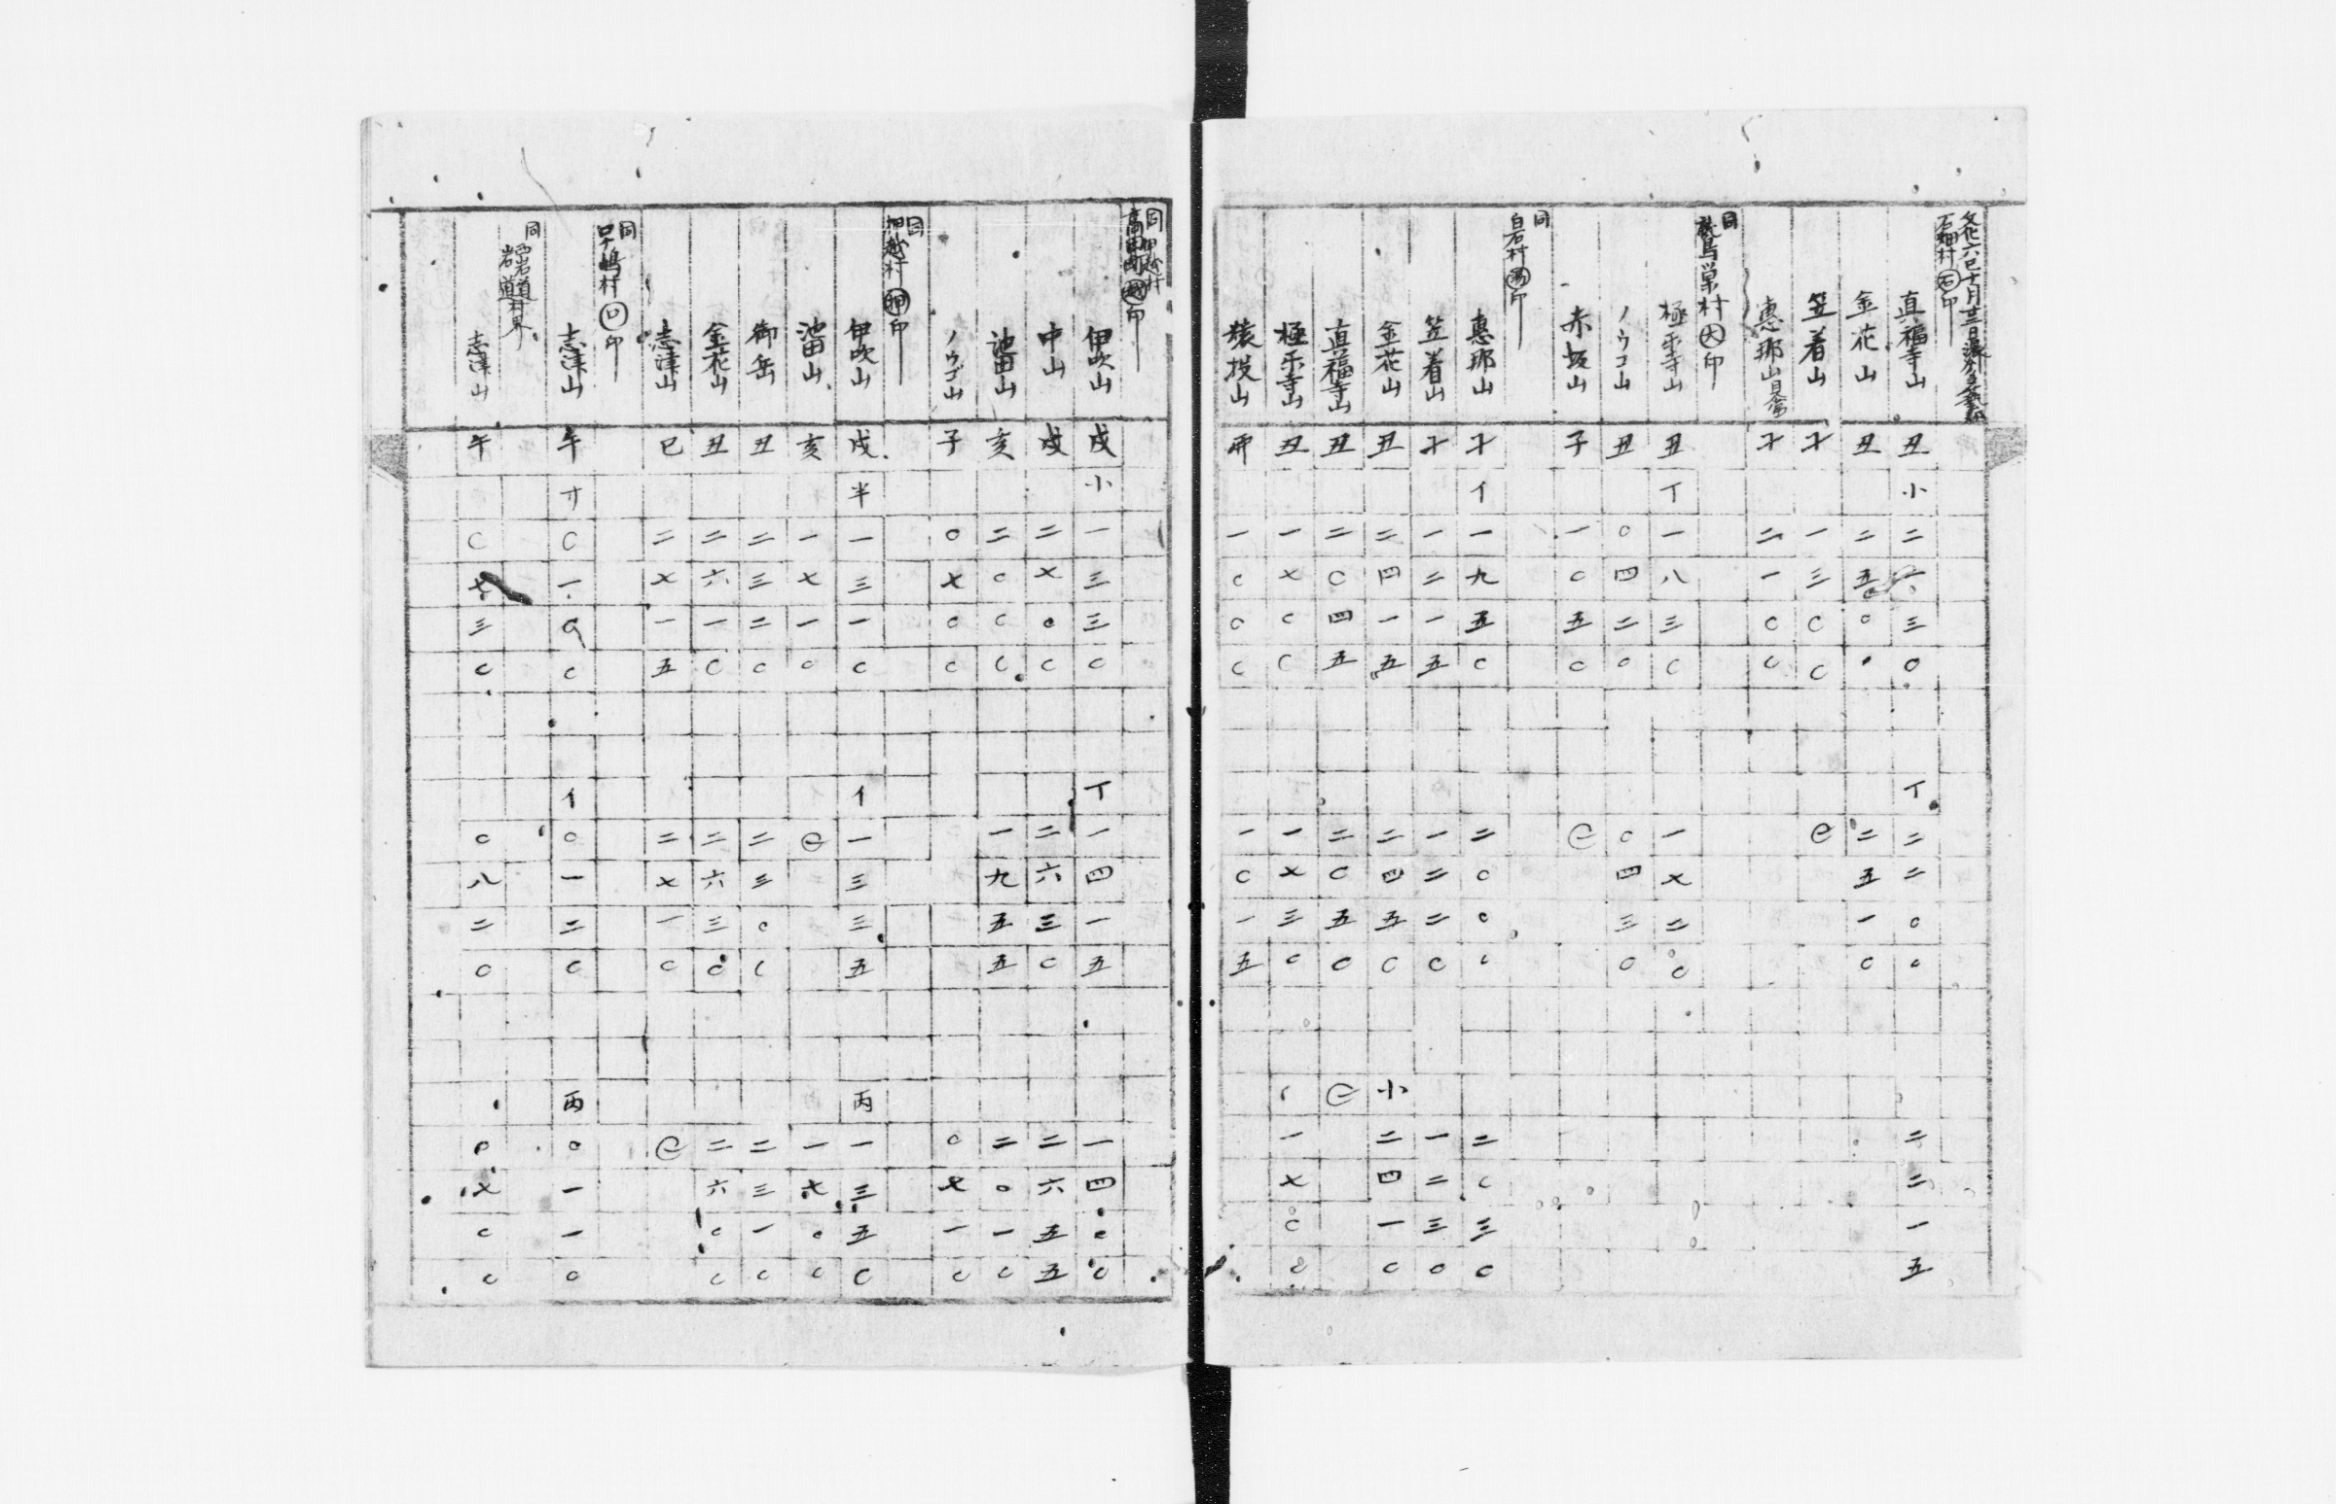 石畑村 石印
直福寺山 丑 小 二 六 三 〇 丁 二 二 〇 〇 二 二 一 五
金花山 丑 二 五 〇 〇 二 五 一 〇
笠着山 才 一 三 〇 〇
惠那山 才 二 一 〇 〇
同
鷲巣村 大印
極乐寺山 丑 丁 一 八 三 〇 一 七 二 〇
ノウコ山 丑 〇 四 二 〇 〇 四 三 〇
赤坂山 子 一 〇 五 〇
同
白石村 印
惠那山 才 イ 一 九 五 〇 二 〇 〇 〇 二 〇 三 〇
笠着山 才 一 二 一 五 一 二 二 〇 一 二 三 〇
金花山 丑 二 四 一 五 二 四 五 〇 小 二 四 一 〇
直福寺山 丑 二 〇 四 五 二 〇 五 〇
極乐寺山 丑 一 七 〇 〇 一 七 三 〇 一 七 〇 〇
猿投山 卯 一 〇 〇 〇 一 〇 一 五
同
高田町 印
伊吹山 戌 小 一 三 三 〇 丁 一 四 一 五 一 四 〇 〇
中山 戌 二 七 〇 〇 二 六 三 〇 二 六 五 五
池田山 亥 二 〇 〇 〇 一 九 五 五 二 〇 一 〇
ノウゴ山 子 〇 七 〇 〇 〇 七 一 〇
同
押越村 押印
伊吹山 戌 半 一 三 一 〇 イ 一 三 三 五 丙 一 三 五 〇
池田山 亥 一 七 一 〇 一 七 〇 〇
御岳 丑 二 三 二 〇 二 三 〇 〇 二 三 一 〇
金花山 丑 二 六 一 〇 二 六 三 〇 二 六 〇 〇
志津山 巳 二 七 一 五 二 七 一 〇
同
嶋村 口印
志津山 午 才 〇 一 〇 〇 イ 〇 一 二 〇 丙 〇 一 一 〇
同
岩道村界
志津山 午 〇 七 三 〇 〇 八 二 〇 〇 七 〇 〇